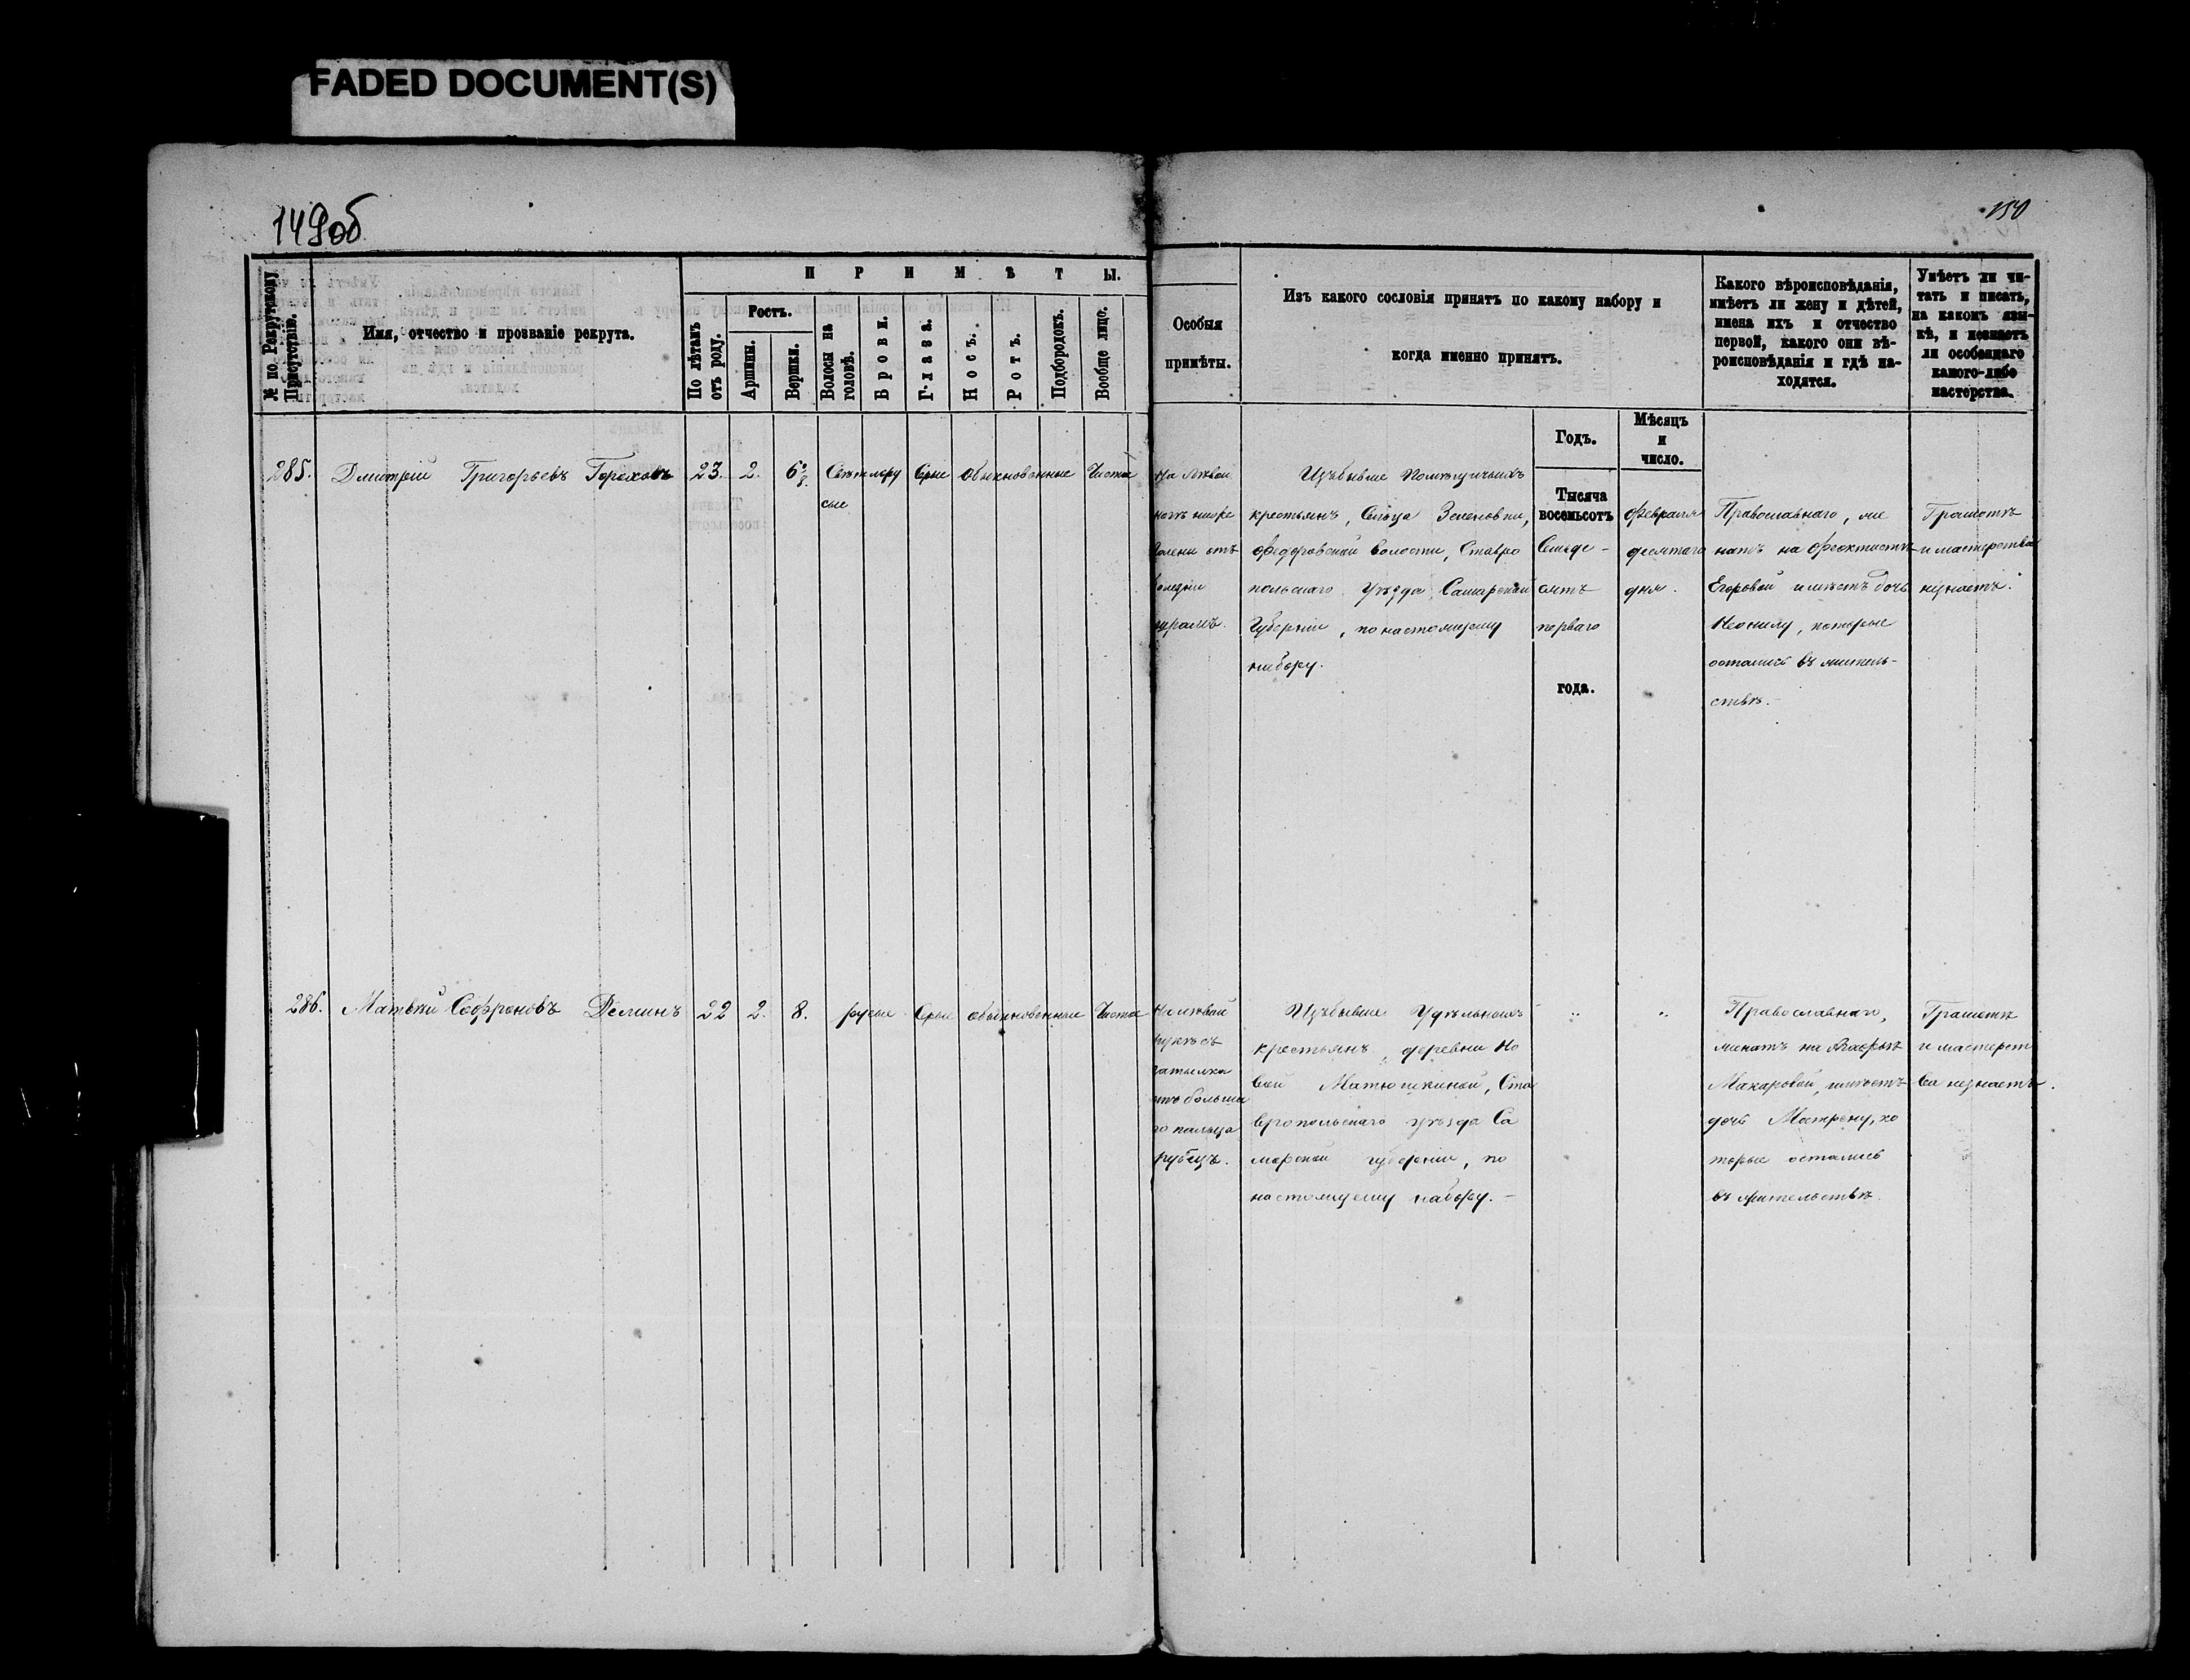 FADED DOCUMENT(S)
149об
150
№ по Рекрутскому Присутствію.
Имя, отчество и прозваніе рекрута.
ПРИМѢТЫ.
По лѣтамъ отъ роду.
Ростъ.
Аршины.
Вершки.
Волосы на головѣ.
Брови.
Глаза.
Носъ.
Ротъ.
Подбородокъ.
Вообще лицо.
Особыя
примѣты.
Изъ какого сословія принятъ по какому набору и
когда именно принятъ.
Какого вѣроисповѣданія,
имѣетъ ли жену и дѣтей,
имена ихъ и отчество
первой, какого они вѣ-
роисповѣданія и гдѣ на-
ходятся.
Умѣетъ ли чи-
тать и писать,
на какомъ язы-
кѣ, и незнаетъ
ли особеннаго
какого-либо
мастерства.
Годъ.
Мѣсяцъ
и
число.
285. Дмитрій Григорьевъ Гороховъ 23. 2. 6 Свѣтлору
сые
Сѣрые обыкновенные Чистое
На лѣвой
ногѣ ниже
колени отъ
болѣзни
шрамъ.
Изъ бывше помѣщичьихъ
крестьянъ, Сельца Зеленовки,
Федоровской волости, Ставро
польскаго Уѣзда Самарской
Губерніи, по настоящему
набору.
Тысяча
восемьсотъ
Семьде-
сятъ
перваго
года.
Февраля
десятаго
дня.
Православнаго, же
натъ на Феоктистѣ
Егоровой имѣетъ дочь
Неонилу, которые
остались въ житель-
ствѣ.
Грамотѣ
и мастерства
незнаетъ.
286. Матвѣй Софроновъ Деминъ 22 2. 8. русые Сѣрые обыкновенные Чистое
На лѣвой
рукѣ съ
затылка
отъ больша
го пальца
рубецъ.
Изъ бывше Удѣльныхъ
крестьянъ, деревни Но
вой Матюшкиной, Ста
вропольскаго уѣзда Са
марской губерніи, по
настоящему набору. -
" "
Православнаго,
женатъ на
Макаровой, имѣетъ
дочь Матрену, ко
торые остались
въ жительствѣ.
Грамотѣ
и мастерст
ва незнаетъ.